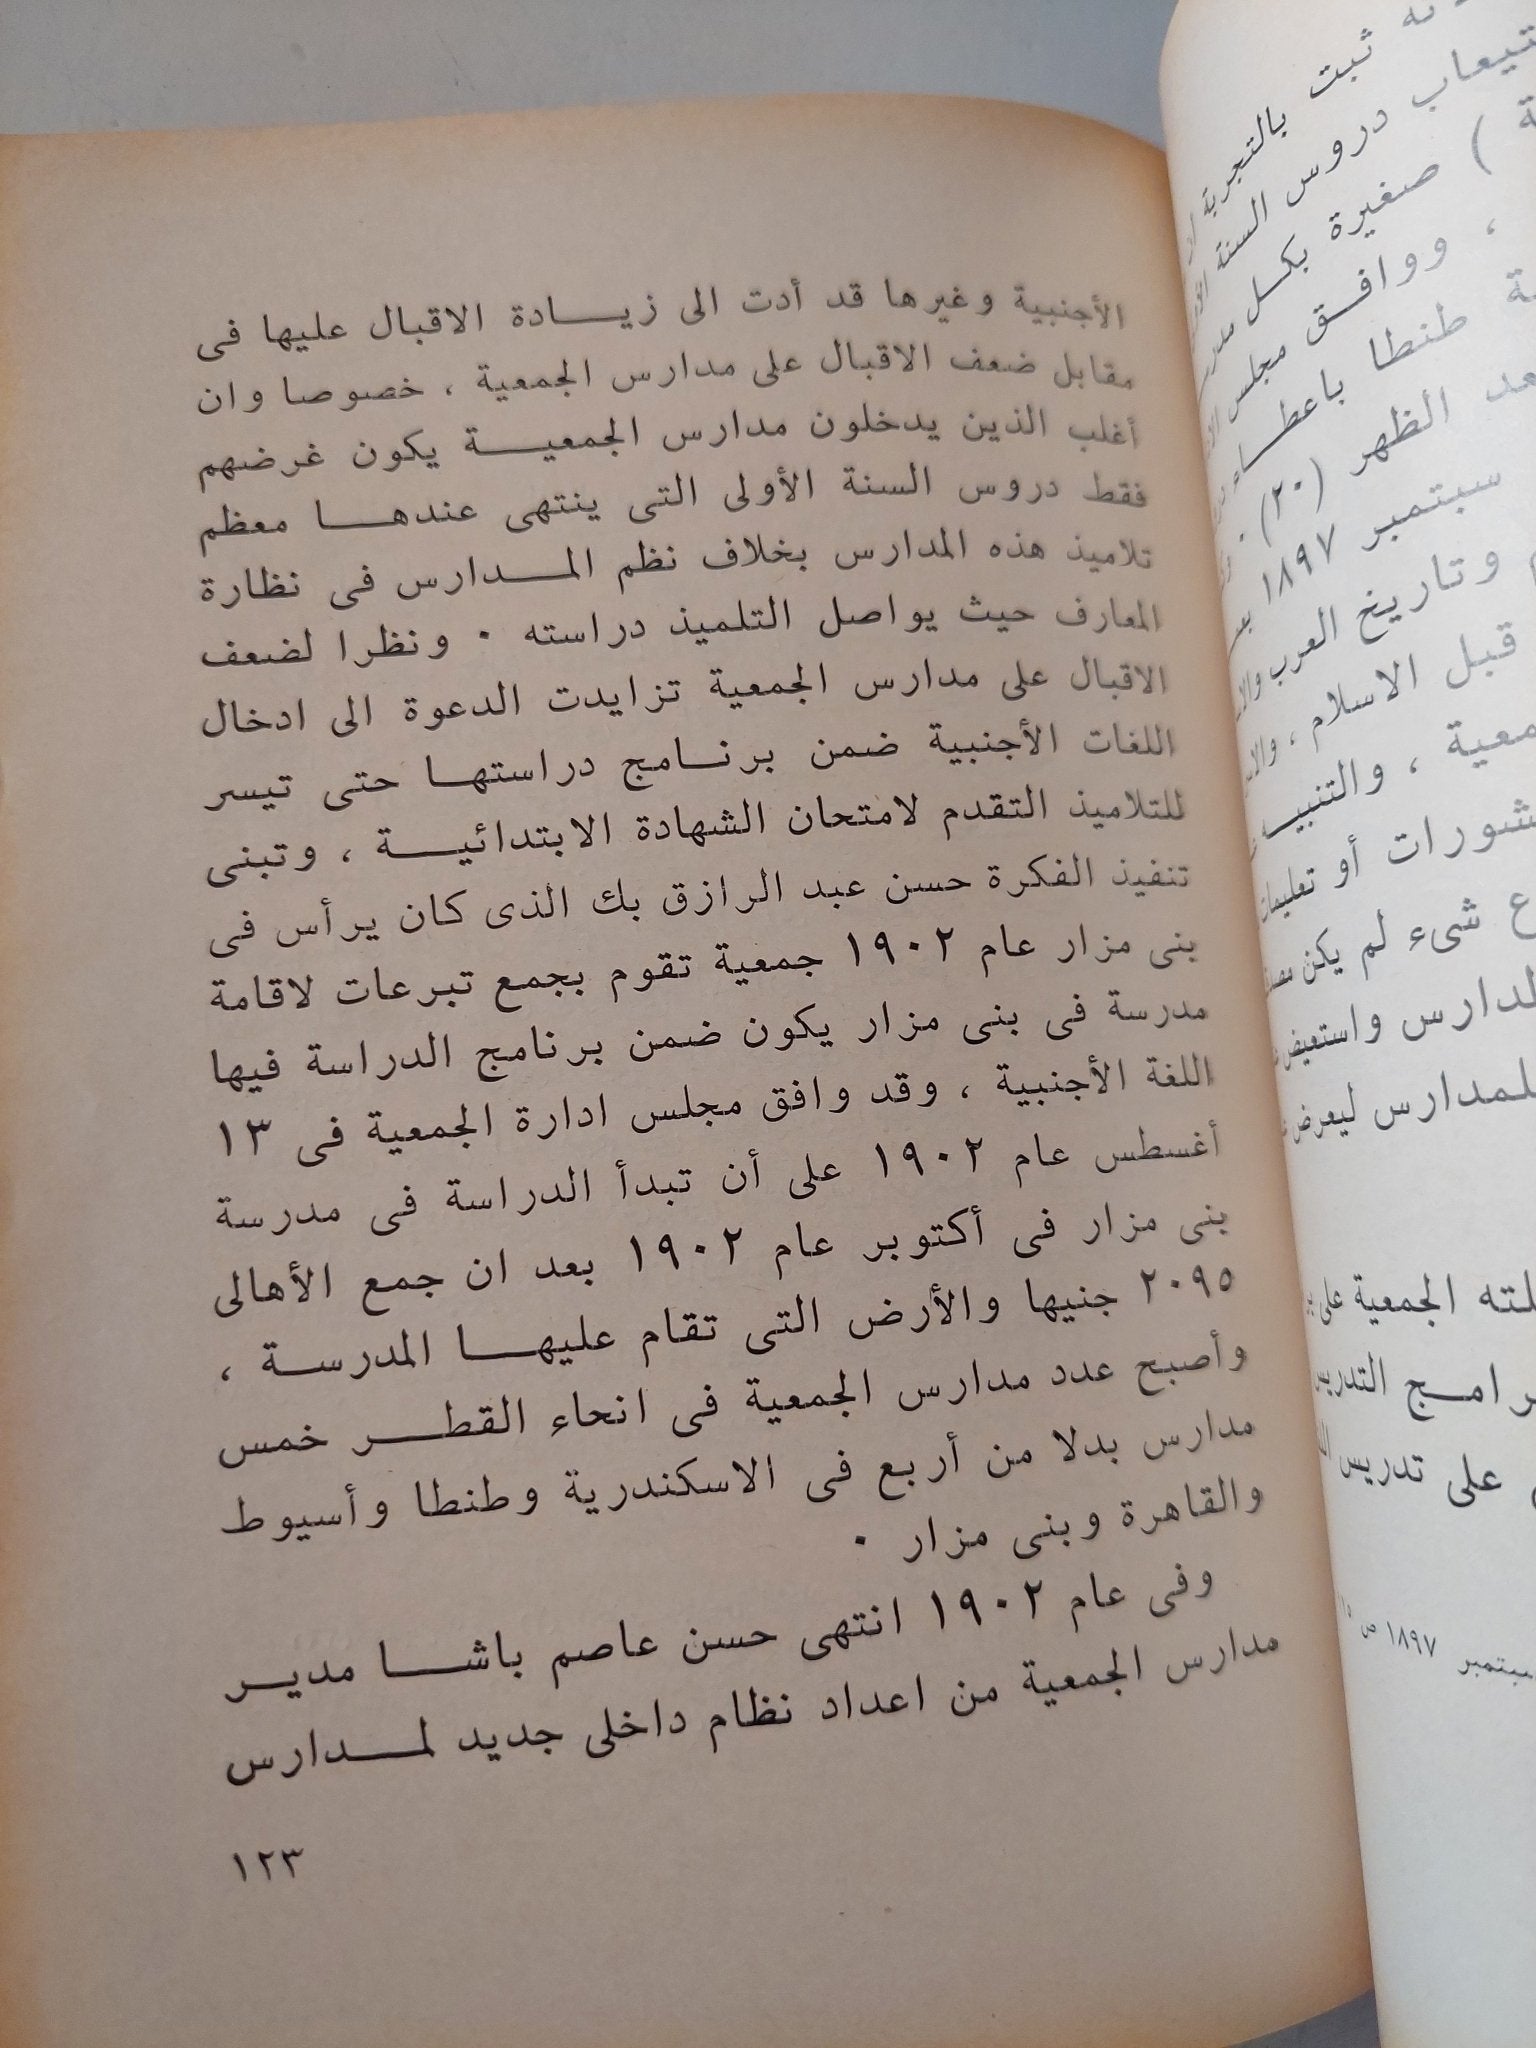 الأجنبية وغيرها قد أدت الى زيادة الاقبال عليها فى
مقابل ضعف الاقبال على مدارس الجمعية ، خصوصا وان
أغلب الذين يدخلون مدارس الجمعية يكون غرضهم
فقط دروس السنة الأولى التى ينتهى عندها معظم
تلاميذ هذه المدارس بخلاف نظم المدارس فى نظارة
المعارف حيث يواصل التلميذ دراسته ٠ ونظرا لضعف
الاقبال على مدارس الجمعية تزايدت الدعوة الى ادخال
اللغات الأجنبية ضمن برنامج دراستها حتى تيسر
للتلاميذ التقدم لامتحان الشهادة الابتدائية ، وتبنى
تنفيذ الفكرة حسن عبد الرازق بك الذى كان يرأس فى
بنى مزار عام ١٩٠٢ جمعية تقوم بجمع تبرعات لاقامة
مدرسة فى بنى مزار يكون ضمن برنامج الدراسة فيها
اللغة الأجنبية ، وقد وافق مجلس ادارة الجمعية فى ١٣
أغسطس عام ١٩٠٢ على أن تبدأ الدراسة فى مدرسة
بنى مزار فى أكتوبر عام ١٩٠٢ بعد ان جمع الأهالى
٢٠٩٥ جنيها والأرض التى تقام عليها المدرسة ،
وأصبح عدد مدارس الجمعية فى انحاء القطر خمس
مدارس بدلا من أربع فى الاسكندرية وطنطا وأسيوط
والقاهرة وبنى مزار ٠
وفى عام ١٩٠٢ انتهى حسن عاصم باشا مدير
مدارس الجمعية من اعداد نظام داخلى جديد لمدارس
١٢٣
ثبت بالتجربة
دروس السنة
) صغيرة بكل
، ووافق مجلس
طنطا باعطاء
الظهر (٢٠) ٠
سبتمبر ١٨٩٧
وتاريخ العرب
قبل الاسلام ،
، والتنبيه
أو تعليمات
شىء لم يكن
واستعيض
ليعرض
الجمعية على
التدريس
على تدريس
سبتمبر ١٨٩٧ ص